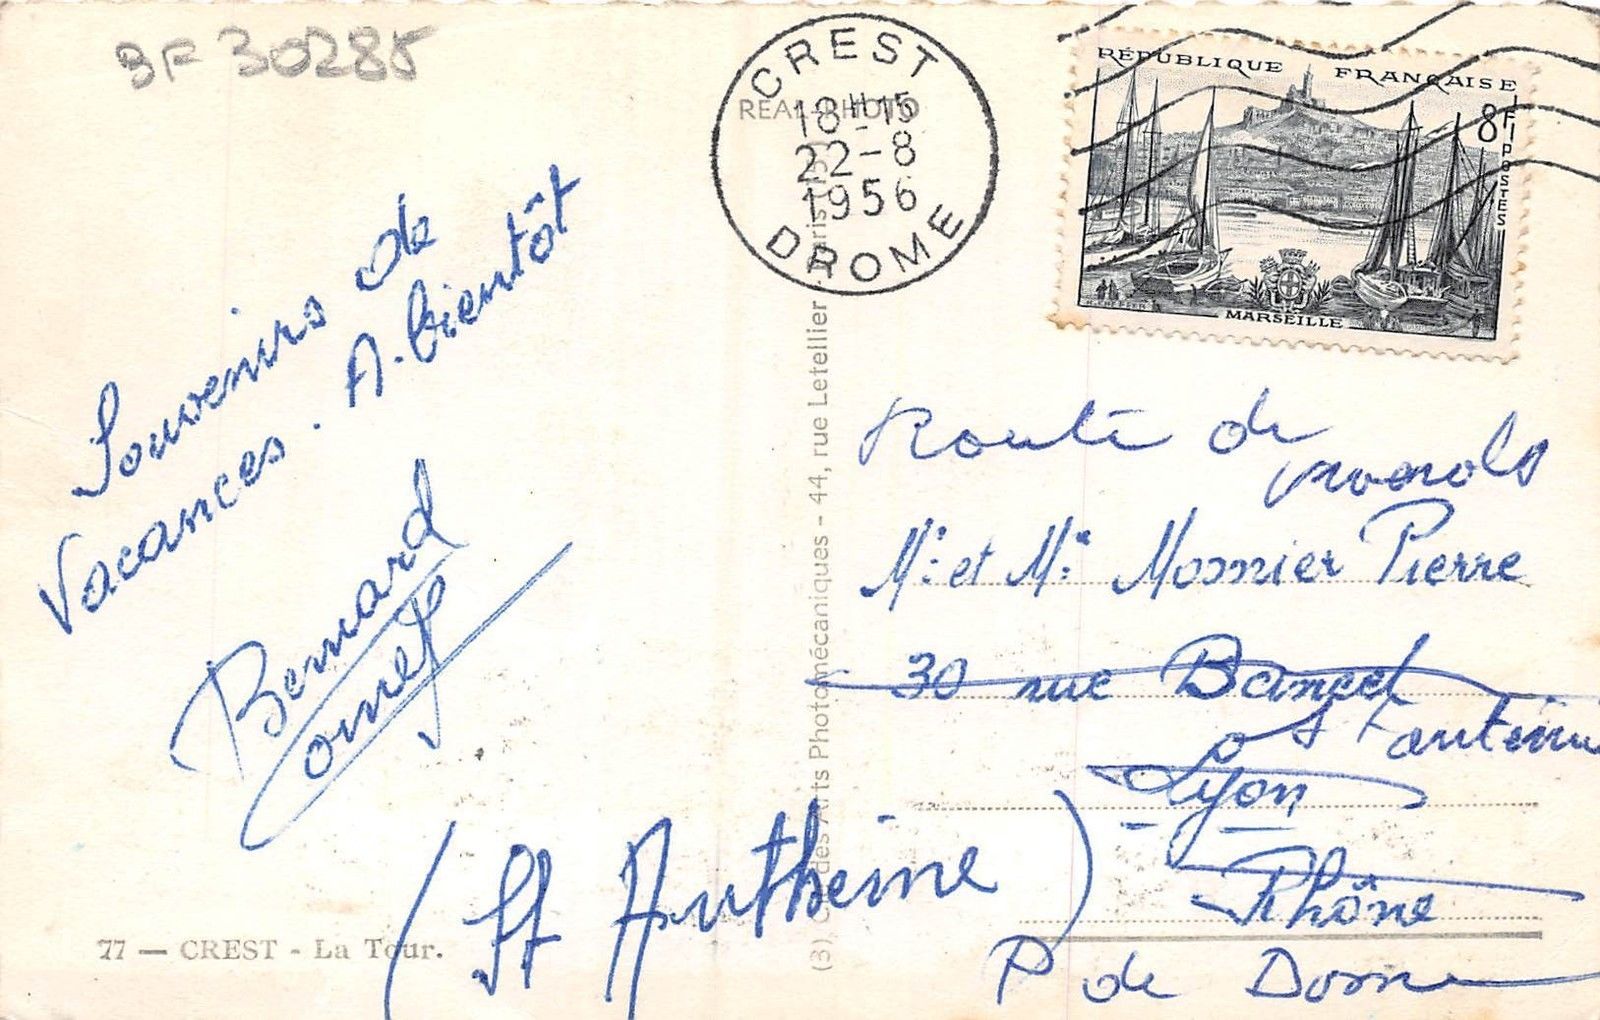 BF 30285
CREST
18H15
22-8
1956
DROME
REAL-PHOTO
RÉPUBLIQUE FRANÇAISE
8F
POSTES
MARSEILLE
Souvenirs de
Vacances. A. bientôt
Bernard
Route de
Mr et Me Monnier Pierre
30 rue Bancel
St Antheme
Lyon
Rhône
(St Antheme)
P de Dome
77 — CREST - La Tour.
des Arts Photomécaniques - 44, rue Letellier - Paris